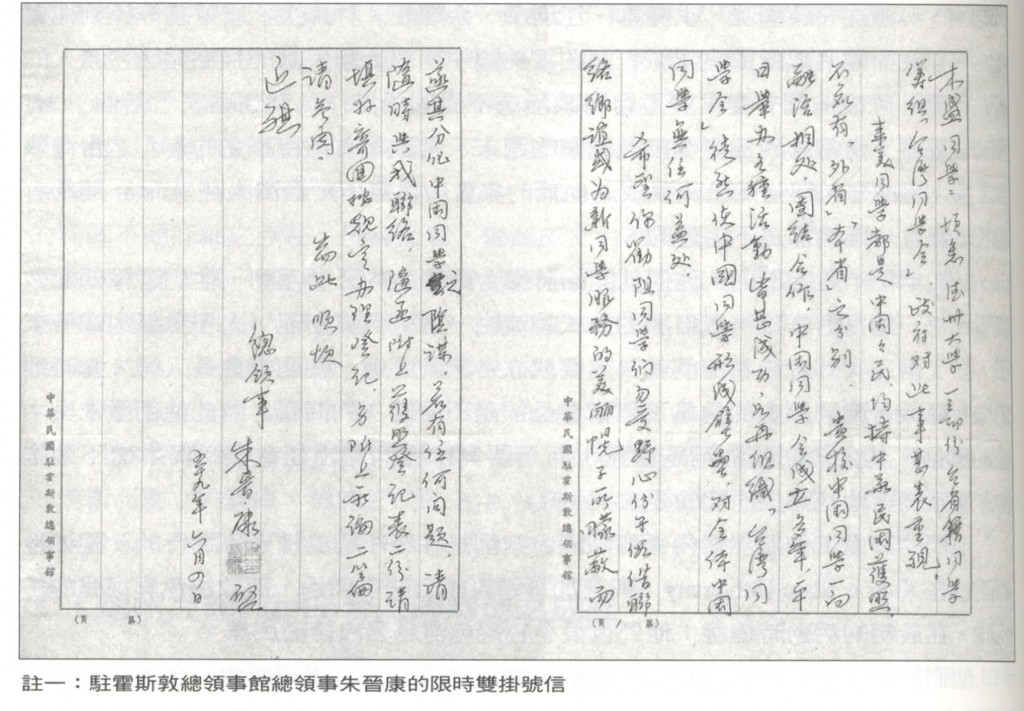 木盛同學：頃悉德州大學一部份台省籍同學
籌組「台灣同學会」政府对此事甚表重視。
來美同學都是中國人民，均持中華民國護照，
不應有「外省」「本省」之分別。貴校中國同學一向
融洽相处，團結合作，中國同學会成立多年，平
日舉办各種活動皆甚成功，如再組織「台灣同
學会」徒然使中國同學形成壁壘，对全体中國
同學無任何益处。
希望你勸阻同學們勿受野心份子假借聯
絡鄉誼或为新同學服務的美麗幌子所矇蔽而
中華民國駐霍斯敦總領事館
(第1頁)
遂其分化中國同學之陰謀。若有任何問題，請
隨時與我聯絡，隨函附上護照登記表二份請
填妥寄回办理登記。另附上論二篇
請參閱。 耑此 順頌
近祺
總領事 朱晉康 啟
五十九年六月四日
中華民國駐霍斯敦總領事館
(第 頁)
註一：駐霍斯敦總領事館總領事朱晉康的限時雙掛號信